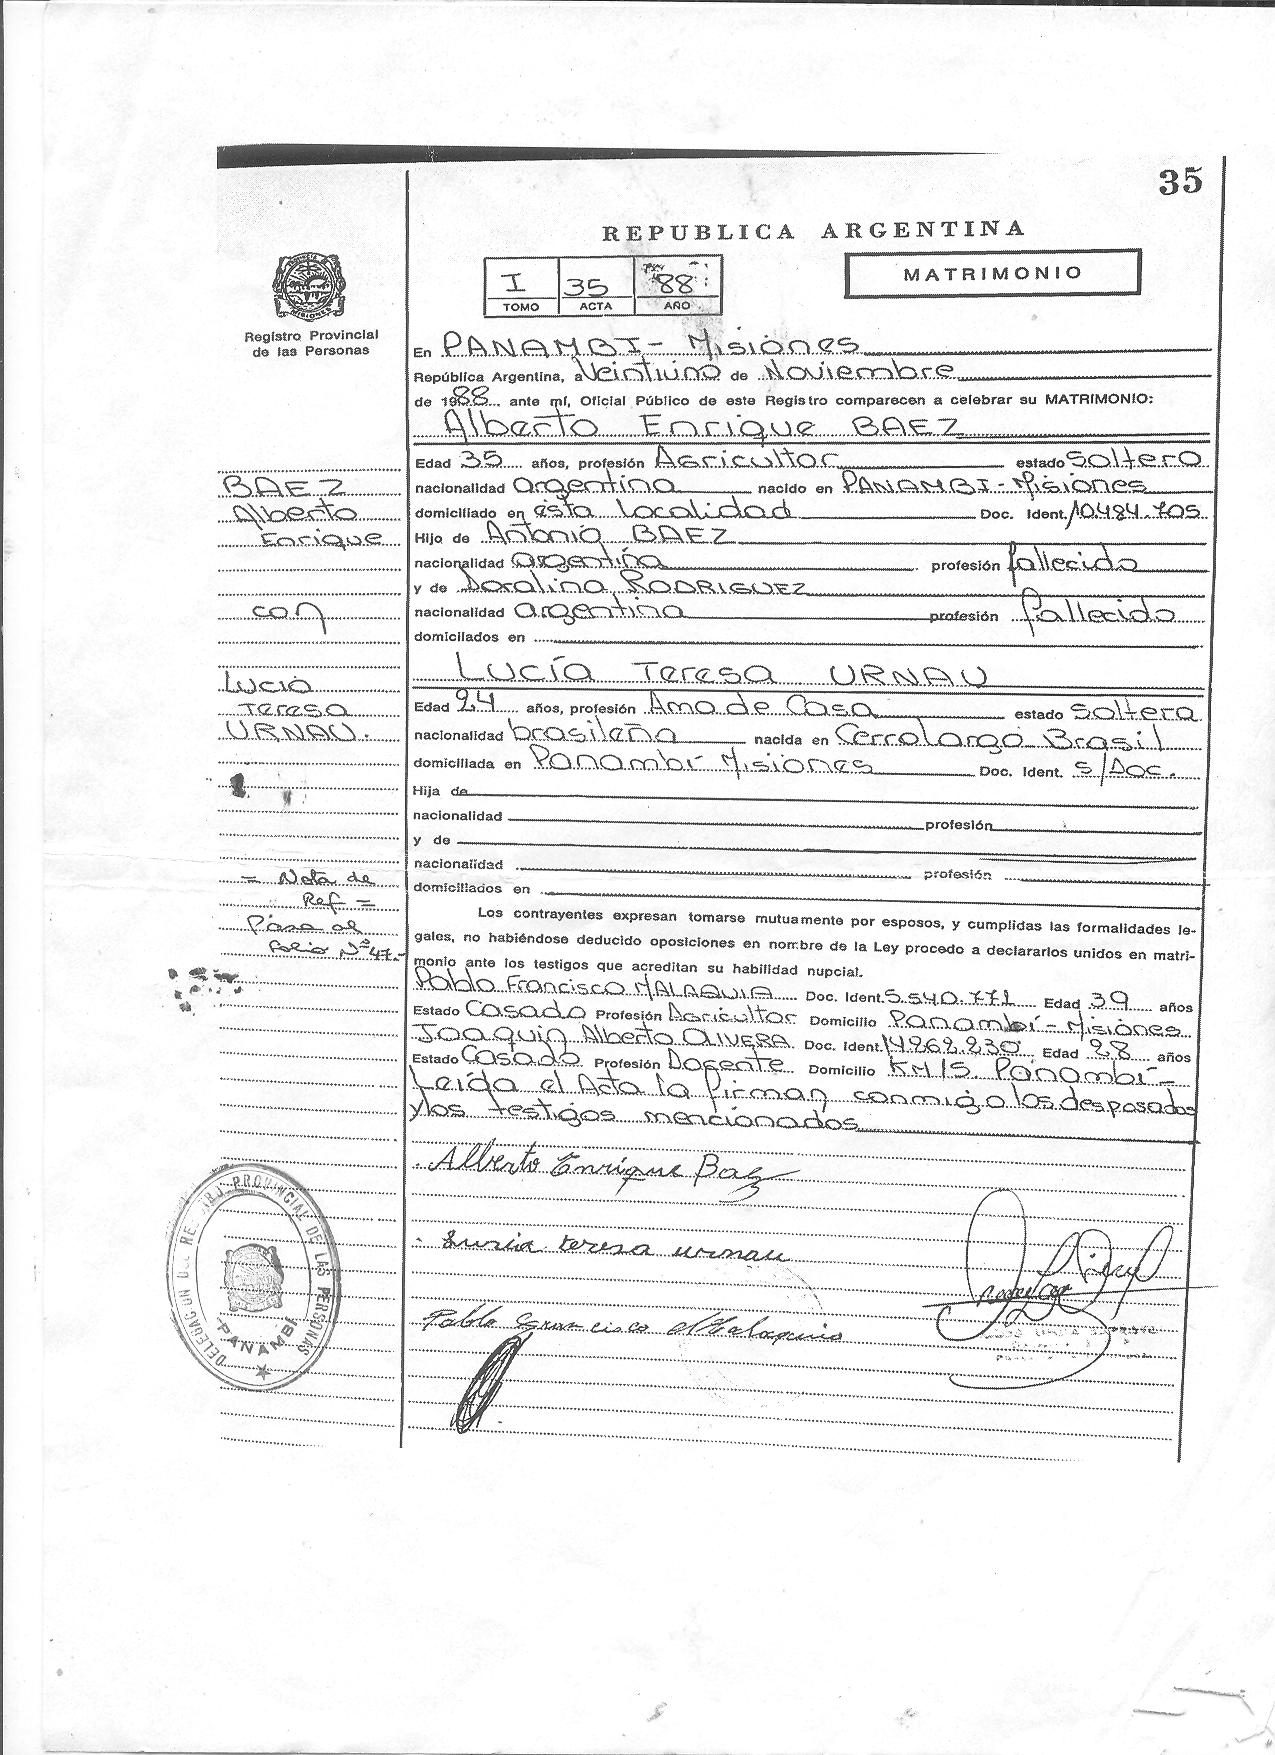 35
REPUBLICA ARGENTINA
MATRIMONIO
I 35 88
TOMO ACTA AÑO
PROVINCIA DE MISIONES
Registro Provincial
de las Personas
En PANAMBI - Misiones
República Argentina, a Veintiuno de Noviembre
de 1988 ante mí, Oficial Público de este Registro comparecen a celebrar su MATRIMONIO:
Alberto Enrique BAEZ
Edad 35 años, profesión Agricultor estado Soltero
nacionalidad argentina nacido en PANAMBI - Misiones
domiciliado en ésta localidad Doc. Ident. 10.484.705
Hijo de Antonio BAEZ
nacionalidad argentina profesión fallecido
y de Doralina RODRIGUEZ
nacionalidad argentina profesión fallecido
domicilados en
Lucía Teresa URNAU
Edad 24 años, profesión Ama de Casa estado Soltera
nacionalidad brasileña nacida en Cerrolargo Brasil
domiciliada en Panambí Misiones Doc. Ident. s/Doc.
Hija de
nacionalidad profesión
y de
nacionalidad profesión
domiciliados en
Los contrayentes expresan tomarse mutuamente por esposos, y cumplidas las formalidades le-
gales, no habiéndose deducido oposiciones en nombre de la Ley procedo a declararlos unidos en matri-
monio ante los testigos que acreditan su habilidad nupcial.
Pablo Francisco MALAQUIA Doc. Ident. 5.540.771 Edad 39 años
Estado Casado Profesión Agricultor Domicilio Panambí - Misiones
Joaquín Alberto OLIVERA Doc. Ident. 14.262.230 Edad 28 años
Estado Casado Profesión Docente Domicilio KM 15. Panambí -
Leída el Acta la firman conmigo los desposados
y los testigos mencionados
Alberto Enrique Baez
Lucia teresa urnau
Pablo Francisco Malaquia
BAEZ
Alberto
Enrique
con
Lucia
Teresa
URNAU.
= Nota de
Ref =
Pasa al
folio Nº 47.-
DELEGACION DEL REGISTRO PROVINCIAL DE LAS PERSONAS
PANAMBI